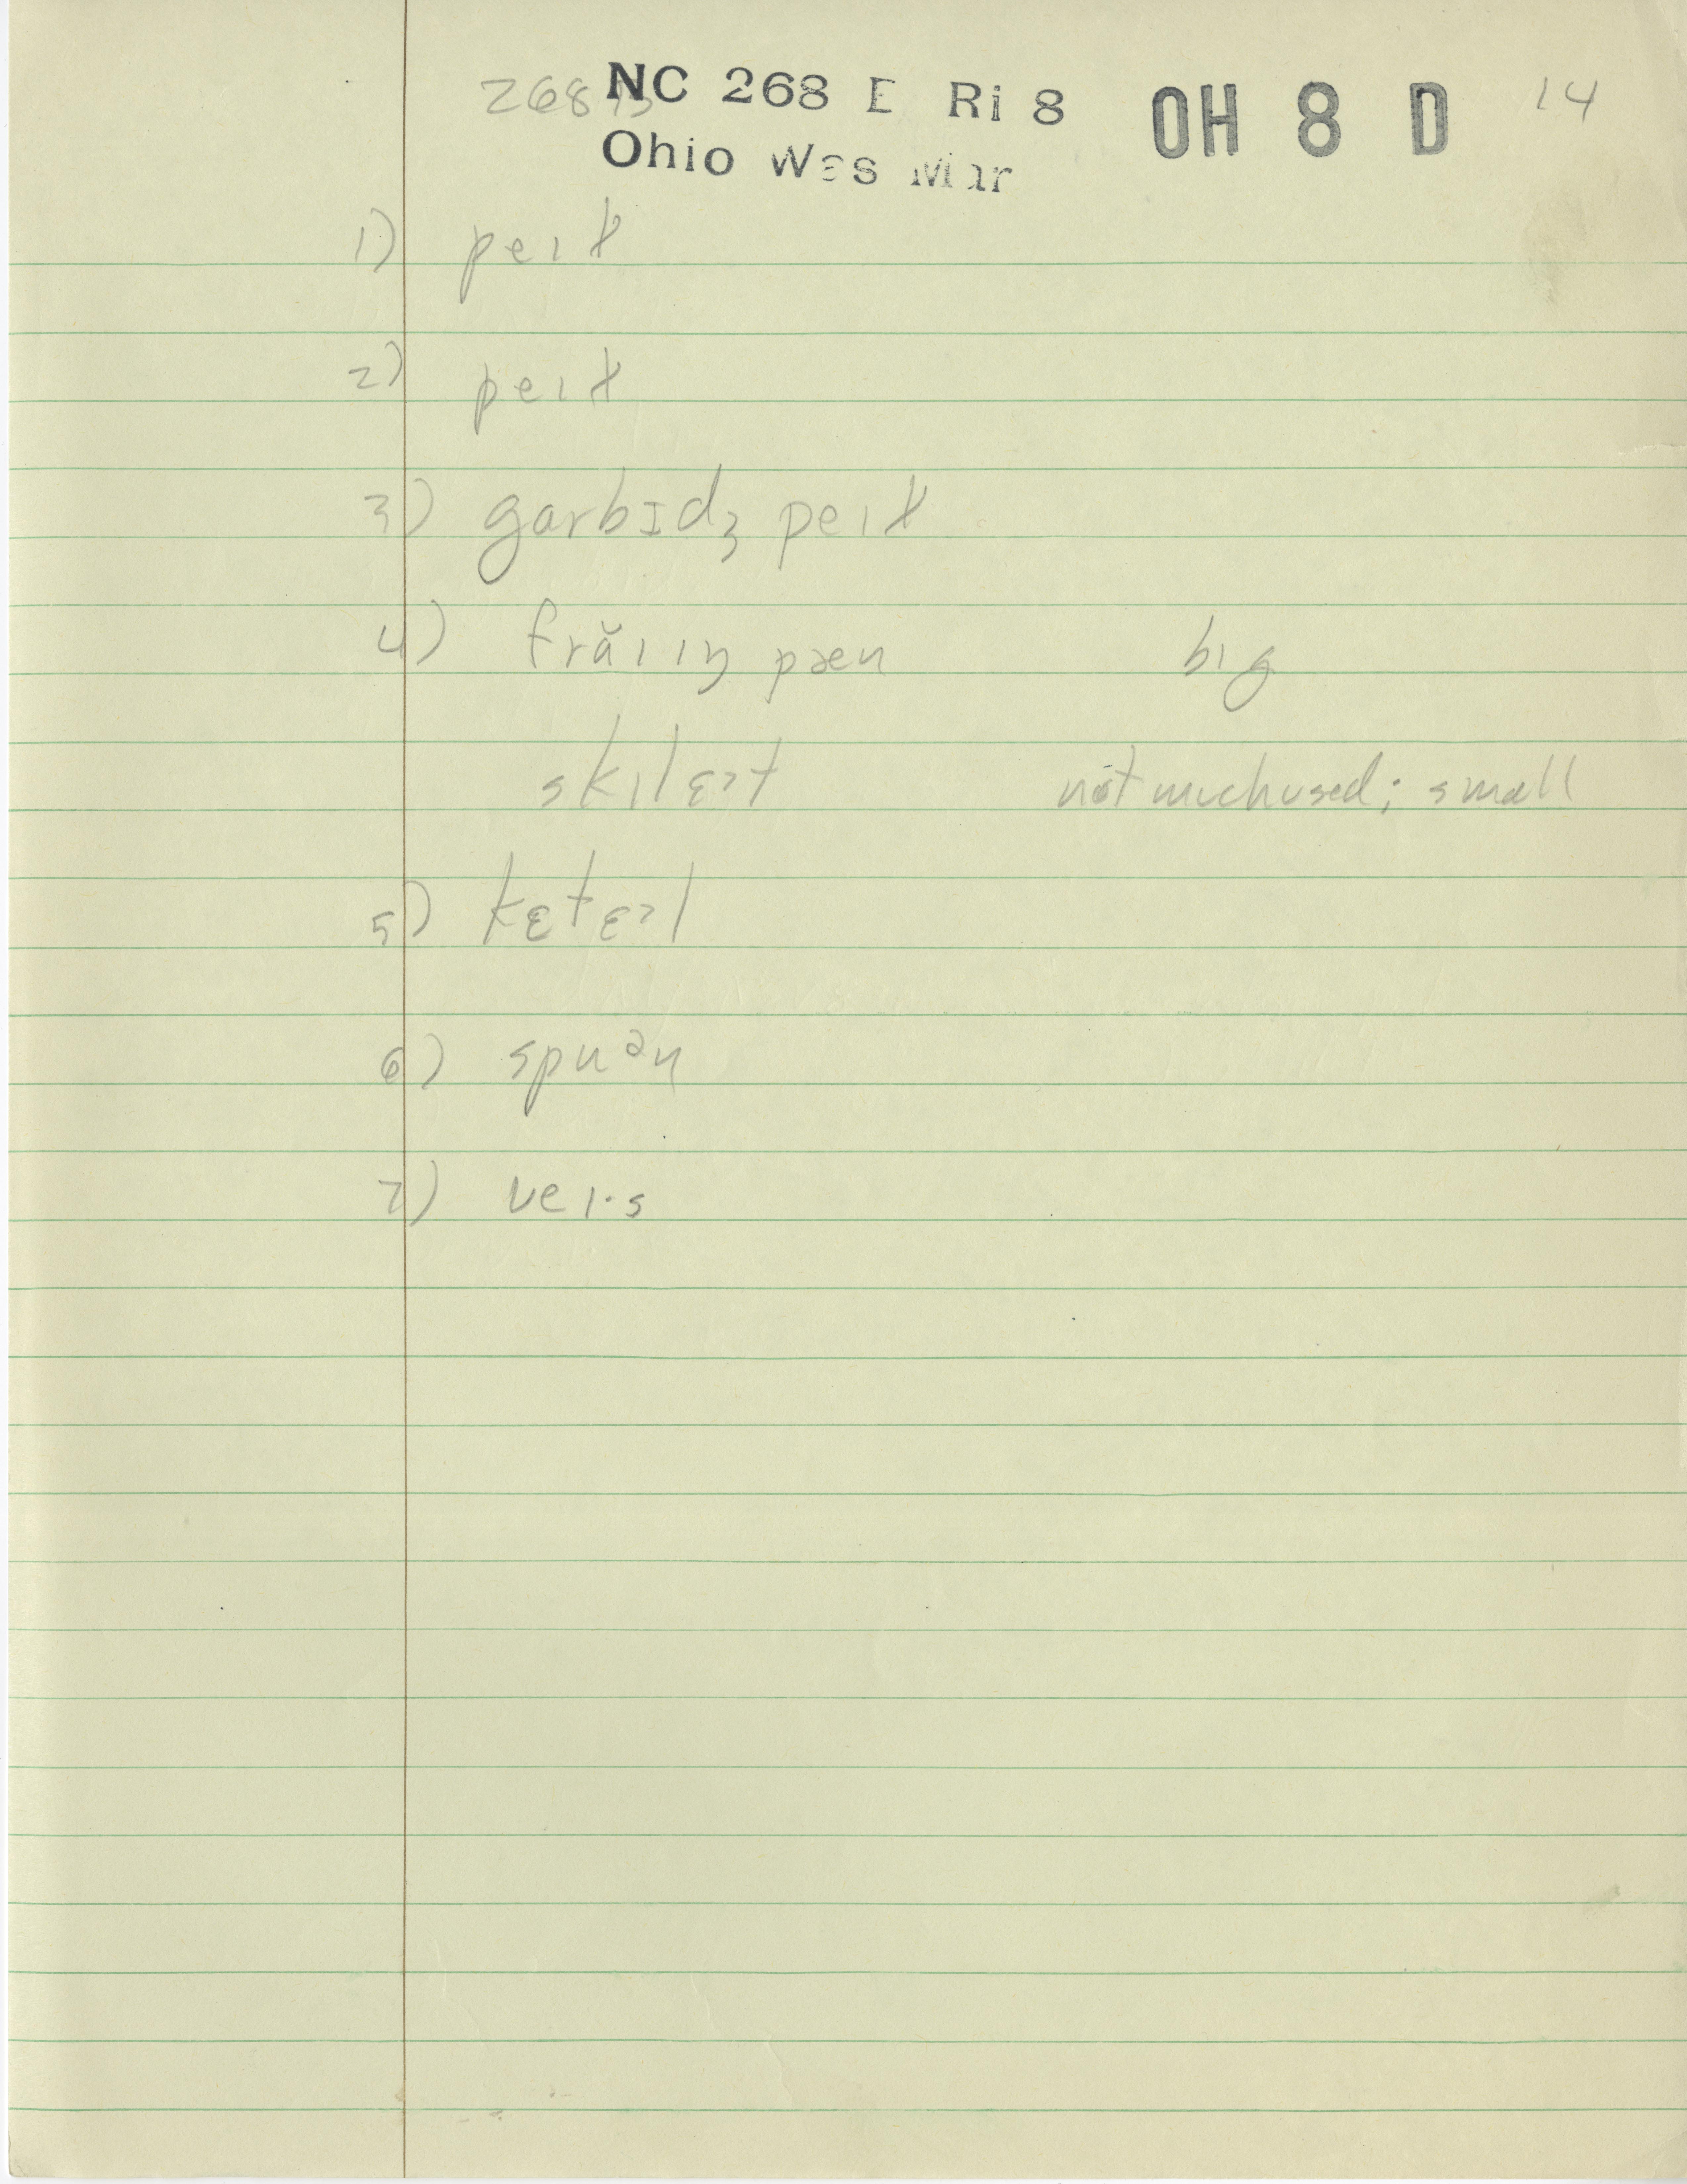 268 NC 268 E Ri 8 OH 8 D 14
Ohio Wes Mar
1) peɪɫ
2) peɪɫ
3) garbɪdʒ peɪɫ
4) frăɪɪŋ pæn bɪg
skɪlɛᵊt not much used; small
5) kɛtɛᵊl
6) spuᵊn
7) veɪ·s